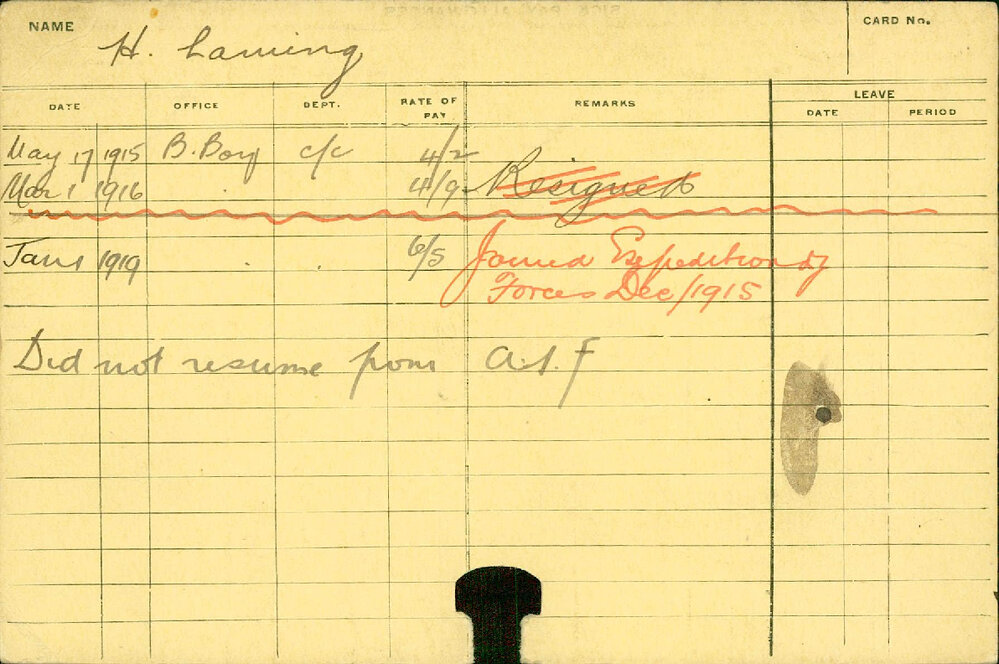 NAME H. Laming CARD No.
LEAVE
DATE OFFICE DEPT. RATE OF PAY REMARKS DATE PERIOD
May 17 1915 B. Boy c/c 4/2
Mar 1 1916 4/9 Resigned
Jan 1 1919 6/5 Joined Expeditionary
Forces Dec/1915
Did not resume from A.I.F